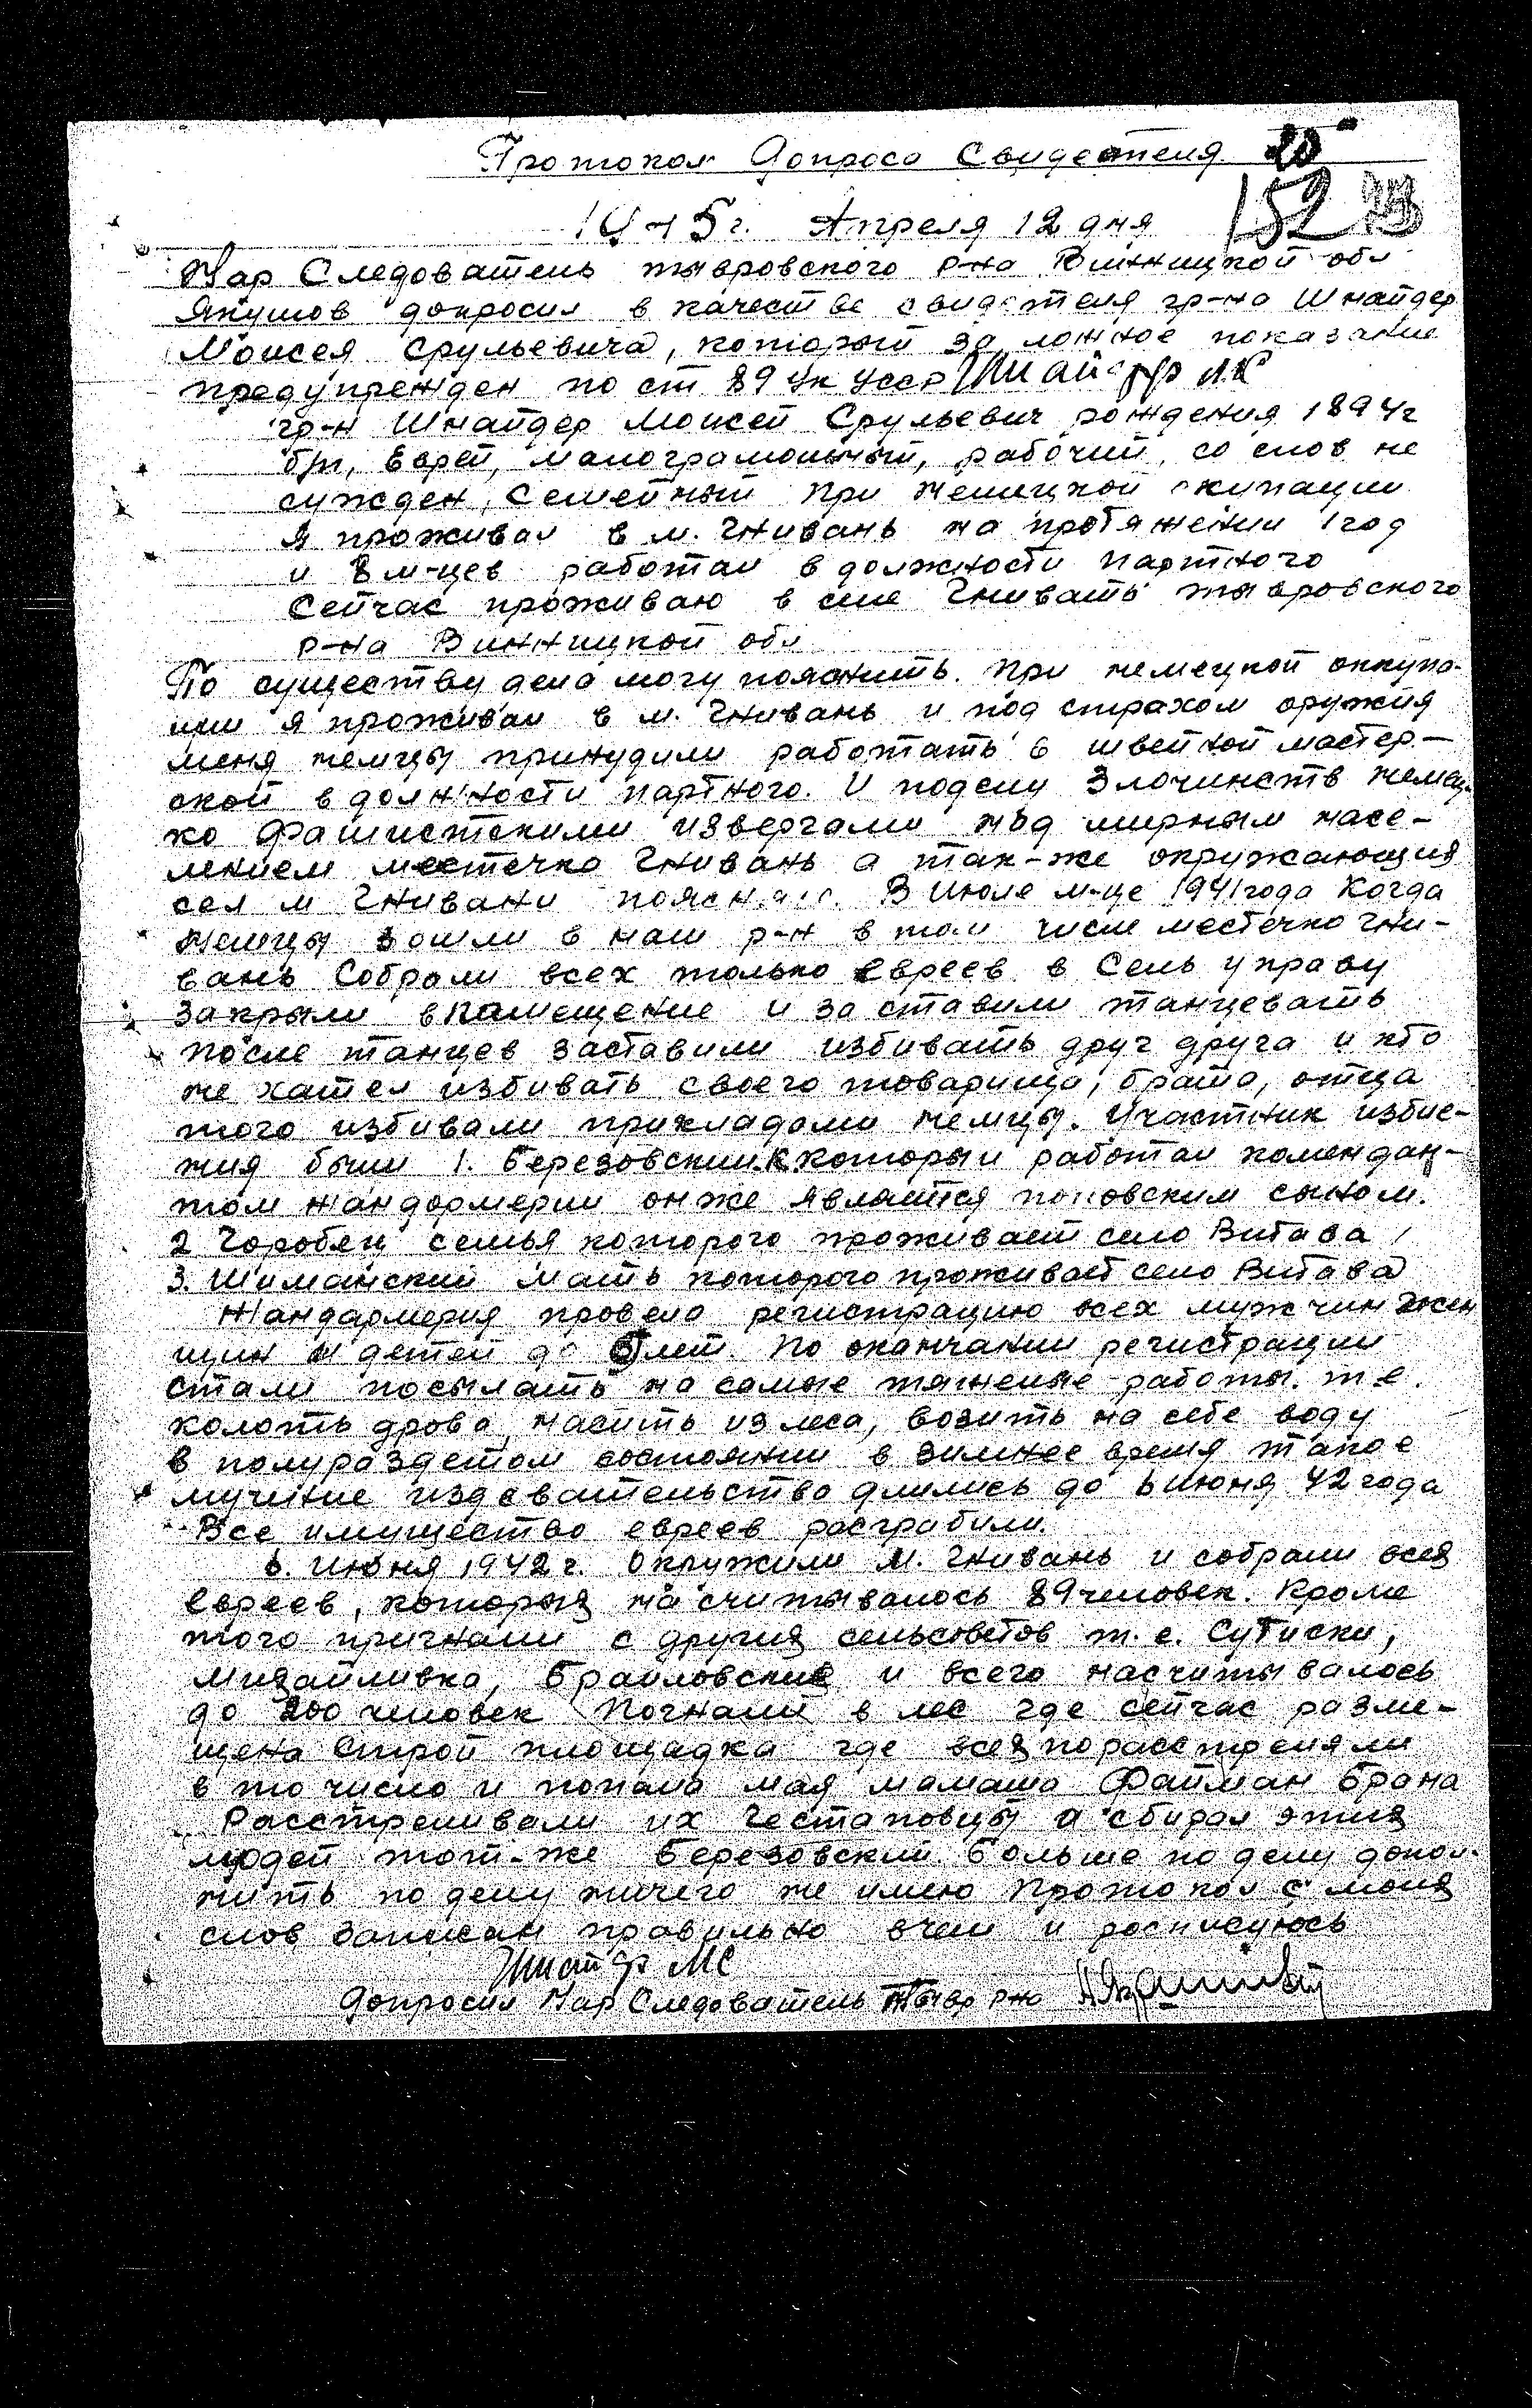 Протокол Допроса Свидетеля 20
152
1945 г. Апреля 12 дня
Нар Следователь тывровского р-на Винницкой обл
Якушов допросил в качестве свидетеля гр-на Шнайдер
Моисея Срульевича, который за ложное показание
предупрежден по ст 89 Ук Усср Шнайдер М.С
гр-н Шнайдер Моисей Срульевич рождения 1894г
б/п, Еврей, малограмотный, рабочий, со слов не
сужден, семейный При немецкой окупации
я проживал в м. Гнивань на протяжении 1 год
и 8 м-цев работал в должности партного
Сейчас проживаю в селе Гнивать тывровского
р-на Винницкой обл
По существу дела могу пояснить. При немецкой оккупа-
ции я проживал в м. Гнивань и под страхом оружия
меня немцы принудили работать в швейной мастер-
ской в должности партного. И поделу Злочинств немец-
ко Фашистскими извергами над мирным насе-
лением местечка Гнивань а так-же окружающия
сел м Гнивани поясняю. В Июле м-це 1941 года Когда
немцы зошли в наш р-н в том числе местечко Гни-
вань Собрали всех только евреев в Сель управу
Закрыли в помещение и за ставили танцевать
после танцев заставили избивать друг друга и кто
не хател избивать своего товарища, брата, отца
того избивали прикладами немцы. Участник избие-
ния были 1. Березовский который работал комендан-
том жандормерии он же является поповским сыном.
2 Горобец семья которого проживает село Витава
3. Шиманский мать которого проживает село Витава
Жандармерия провела регистрацию всех мужчин жен
щин и детей до лет. По окончании регистрации
стали посылать на самые тяжелые работы. т.е.
колоть дрова, насить из леса, возить на себе воду
в полураздетом состоянии в зимнее время такое
мучение издевательство длились до 6 июня 42 года
Все имущество евреев разграбили.
6. Июня 1942г. Окружили м. Гнивань и собрали всея
евреев, которыя насчитывалось 89 человек. Кроме
того пригнали с другия сельсоветов т.е. Сутиски,
Мизайливка, Браиловские и всего насчитывалось
до 200 человек Погнали в лес где сейчас разме-
щена Строй площадка где всея порасстреляли
в то число и попала мая мамаша Файман Брана
Расстреливали их Гестаповцы а сбирал этия
людей тот-же Березовский. Больше по делу допол-
нить по делу ничего не имею Протокол с моия
слов записан правильно вчем и росписуюсь
Шнайдр МС
Допросил Нар Следователь Тывр р-на